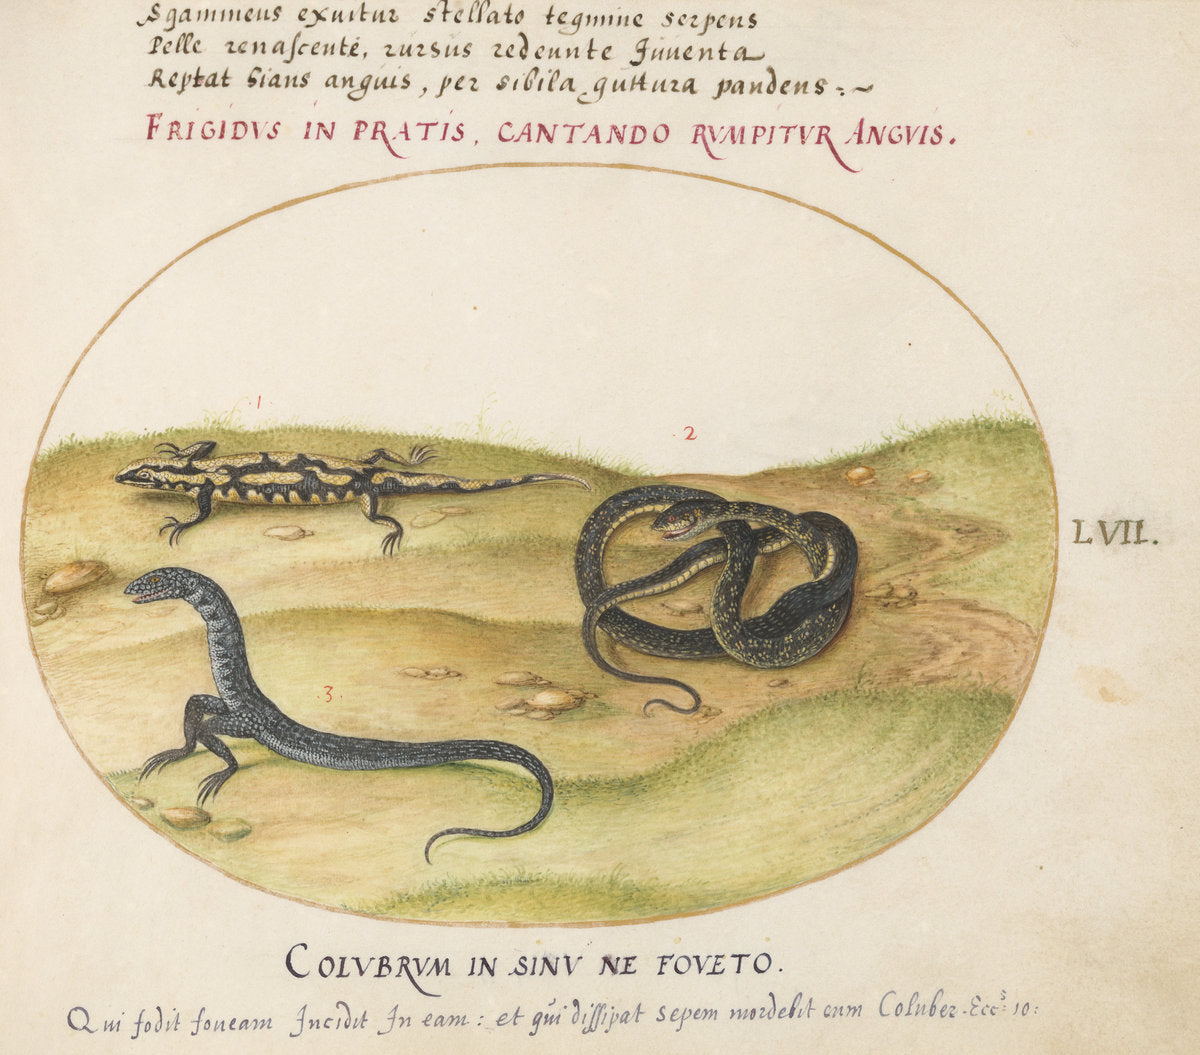 Sgamineus exuitur stellato tegmine serpens
Pelle renascente, rursus redeunte Iuventa
Reptat hians anguis, per sibila guttura pandens
FRIGIDVS IN PRATIS, CANTANDO RVMPITVR ANGVIS.
1
2
LVII.
3.
COLVBRVM IN SINV NE FOVETO.
Qui fodit foveam Incidit In eam: et qui dissipat sepem mordebit eum Coluber. Eccs 10: